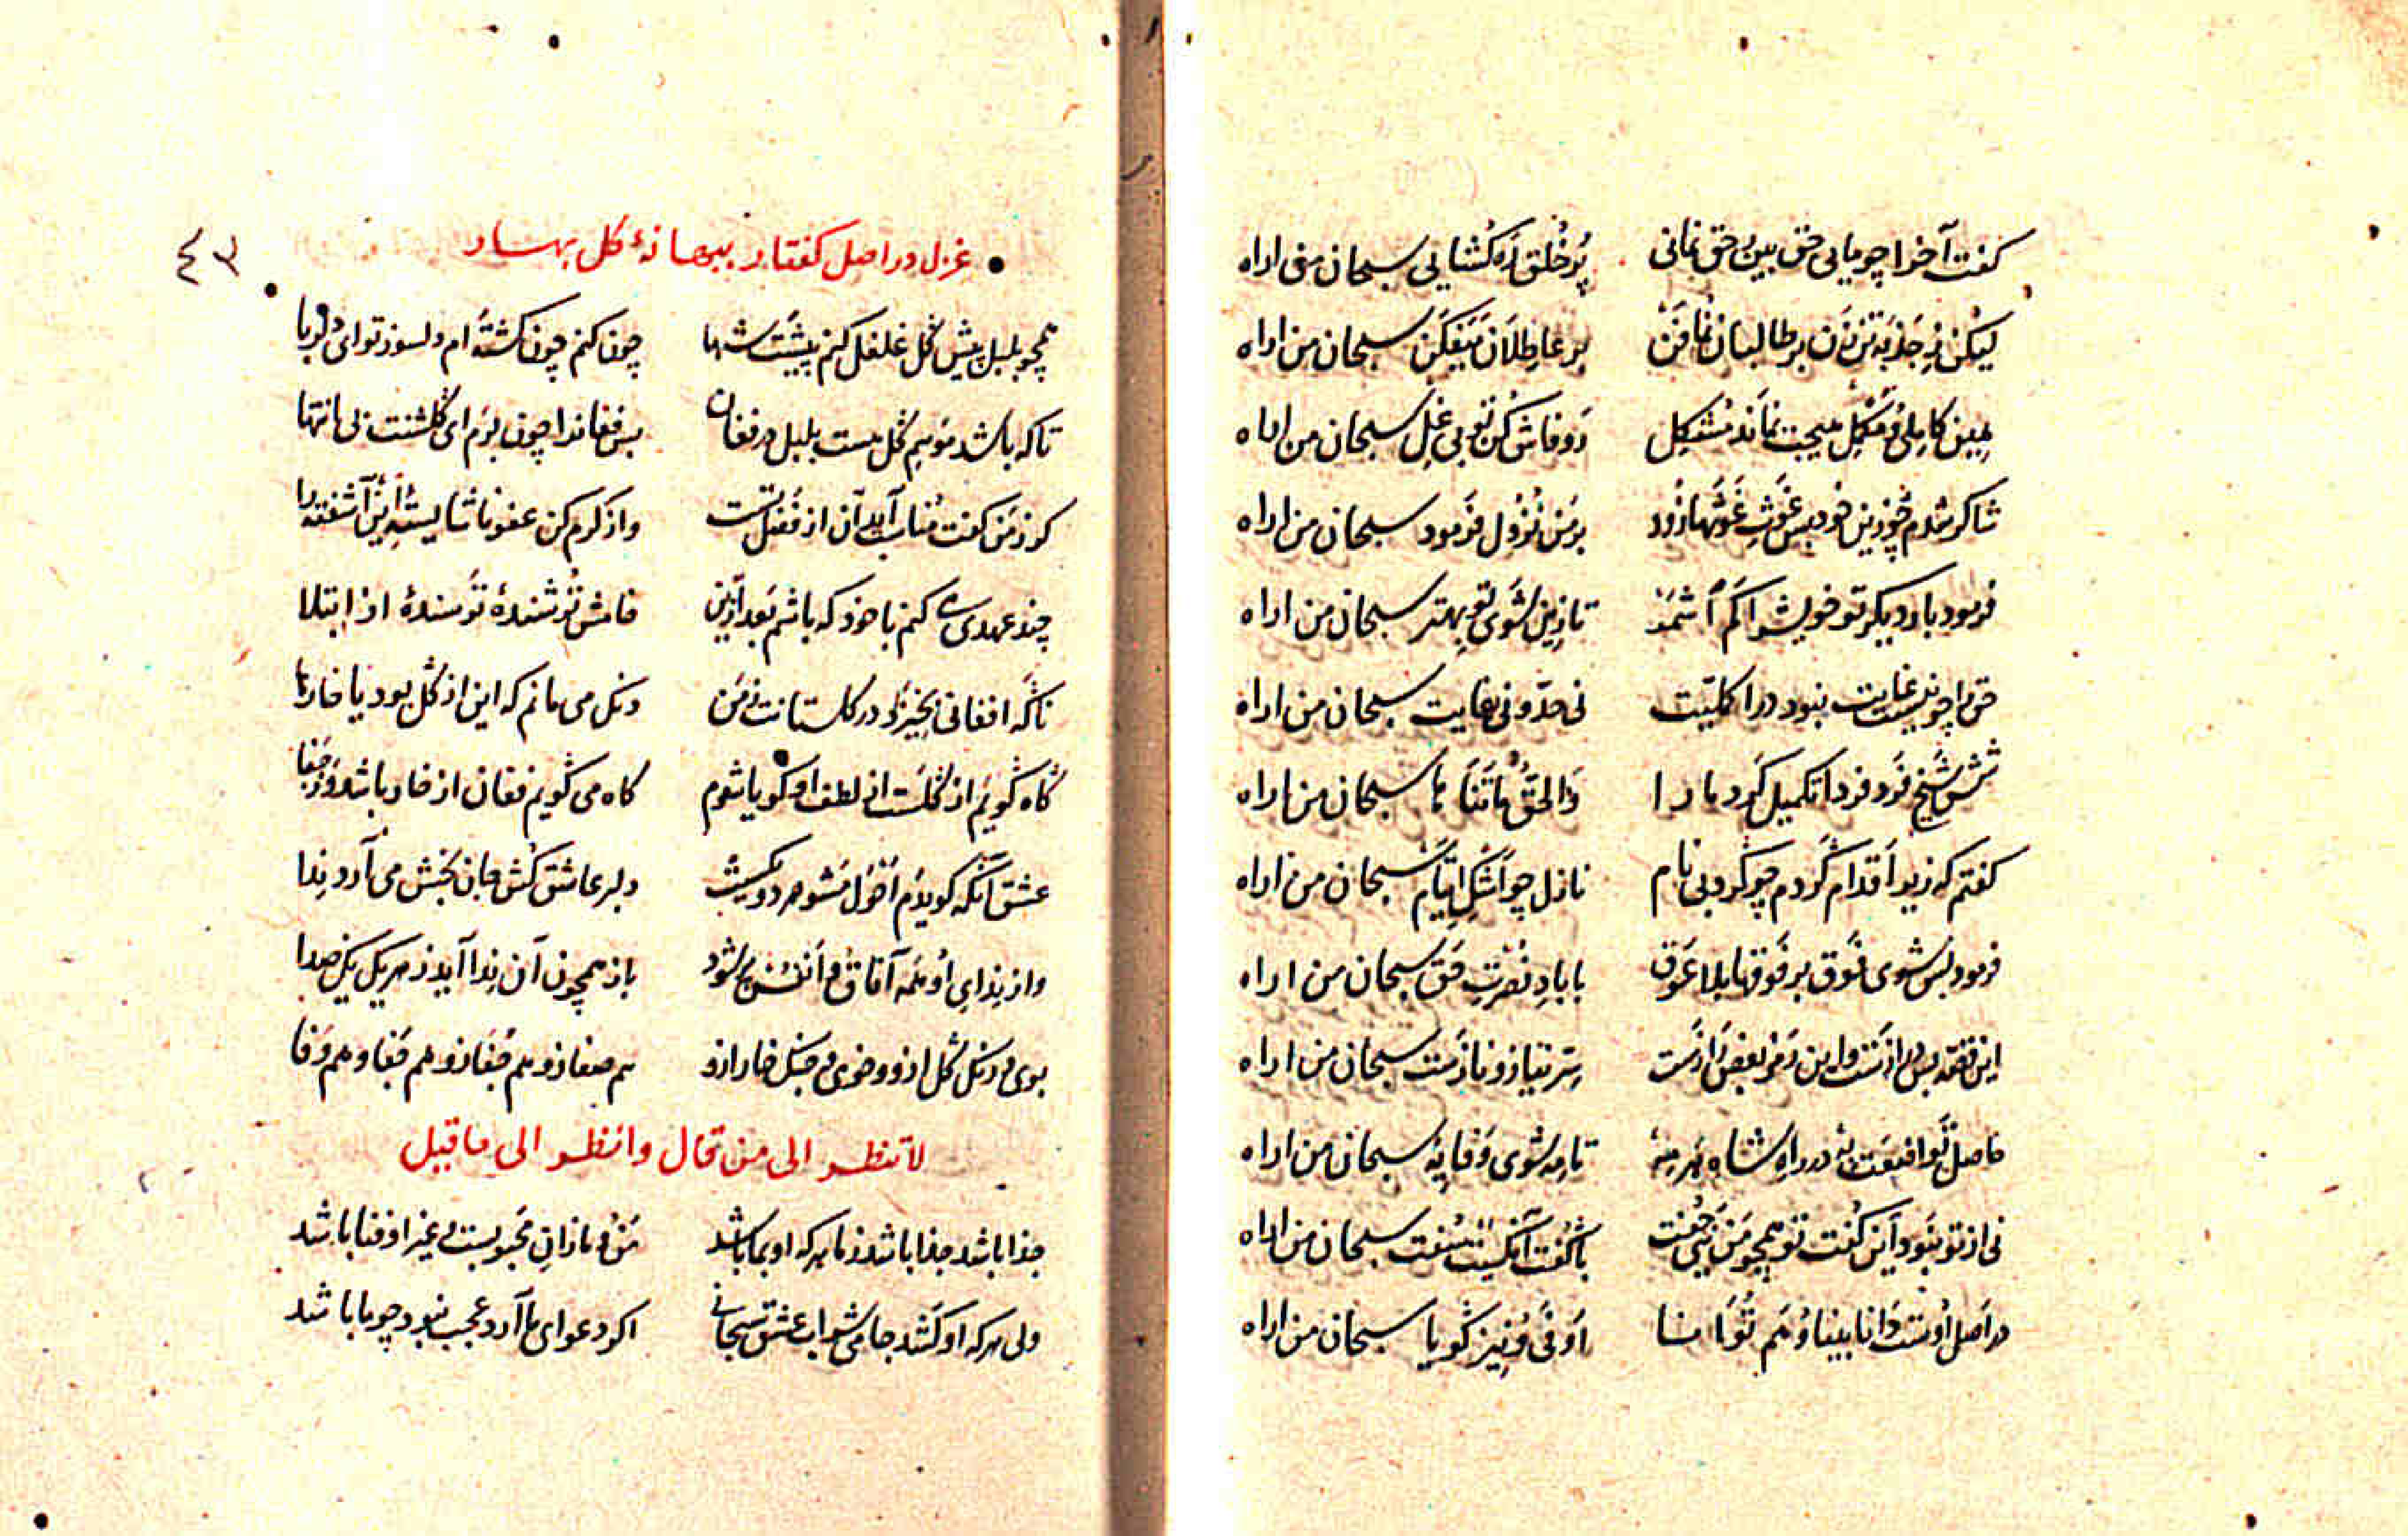 گفت آخر چو مایی حق بین و حق نمائی پر خلق ره گشایی سبحان من اراه
لیکن ز جذبه تن زن بر طالبان نما فن بر عاطلان میفکن سبحان من اراه
ببین کاملی و مکمل هیچت نماند مشکل رو فاش کن تو بی غل سبحان من اراه
شاکر شدم بس غوث غوثها زود بر من نزول فرمود سبحان من اراه
فرمود بار دیگر تو خویش را کم اشمر تا زین شوی تو بهتر سبحان من اراه
حق را چو نیست غایت نبود ورا کلیت نی حد و نی نهایت سبحان من اراه
شش شیخ فرد فرد را تکمیل کرد ما را والحق سبحان من اراه
گفتم که زید اقدام کردم چو کرد بی نام نازل چو اشک ایتام سبحان من اراه
فرمود بس شوی فوق بر فوقها بلا عوق با باد نصرت حق سبحان من اراه
این قصه بس دراز است واین رمز بعض راز است سر نیاز و ناز است سبحان من اراه
حاصل تو در راه شاه تا مه شوی سبحان من اراه
نی از تو بود این گفت تو همچو من با گفت سبحان من اراه
در اصل اوست دانا بینا و هم توانا او نی و نیز گویا سبحان من اراه
٤٣
غزل در اصل گفتار ببهانهٔ گل بهار
همچو بلبل پیش گل غلغل کنم پیشت شها چون کنم چون گشته ام دلسوز تو ای دلربا
تا که باشد موسم گل هست بلبل در فغان بس فغان را چون برم ای گلشنت بی انتها
گر ز من گفت مناسب آید آن از فضل تست ور از کرم کن عفو ناشایستهٔ این آشفته را
چند عهدی کنم با خود که باشم بعد ازین خامش تو شنده تو سنده از ابتلا
ناگه افغانی بخیزد در گلستانت ز من دنگ می مانم که این از گل بود یا خارها
گاه گویم از گلست از لطف او گویا شوم گاه می گویم فغان از خار باشد وز جفا
عشق آنگه گویدم احول مشو هر دو یکیست دلبر عاشق کش جان بخش می آرد ندا
واز ندای او همه آفاق و انفس پر شود باز همچون آن ندا آید ز هر یک یک صدا
بوی و رنگ گل ازو و خوی و جنگ خار ازو هم صفا زو هم جفا زو هم جفا و هم وفا
لاتنظر الی من قال وانظر الی ما قیل
جدا باشد جدا باشد ز ما هر که او بما باشد من و ما زان محبوبست غیر او فنا باشد
ولی هر که او کشد جامی شراب عشق سبحانی اگر دعوای ما آرد عجب نبود چو ما باشد